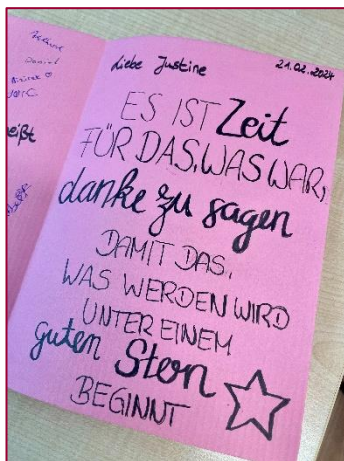 eißt
Liebe Justine 21.02.2024
ES IST Zeit
FÜR DAS, WAS WAR,
danke zu sagen
DAMIT DAS,
WAS WERDEN WIRD
UNTER EINEM
guten Stern
BEGINNT